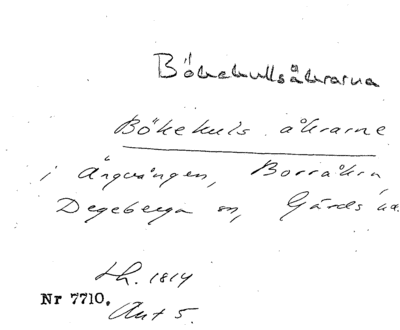 Bökekullsåkrarna
Bökekuls åkrarne
i Ängavången, Borråkra
Degeberga sn, Gärds hd.
Lh. 1814
Nr 7710.
Akt 5.